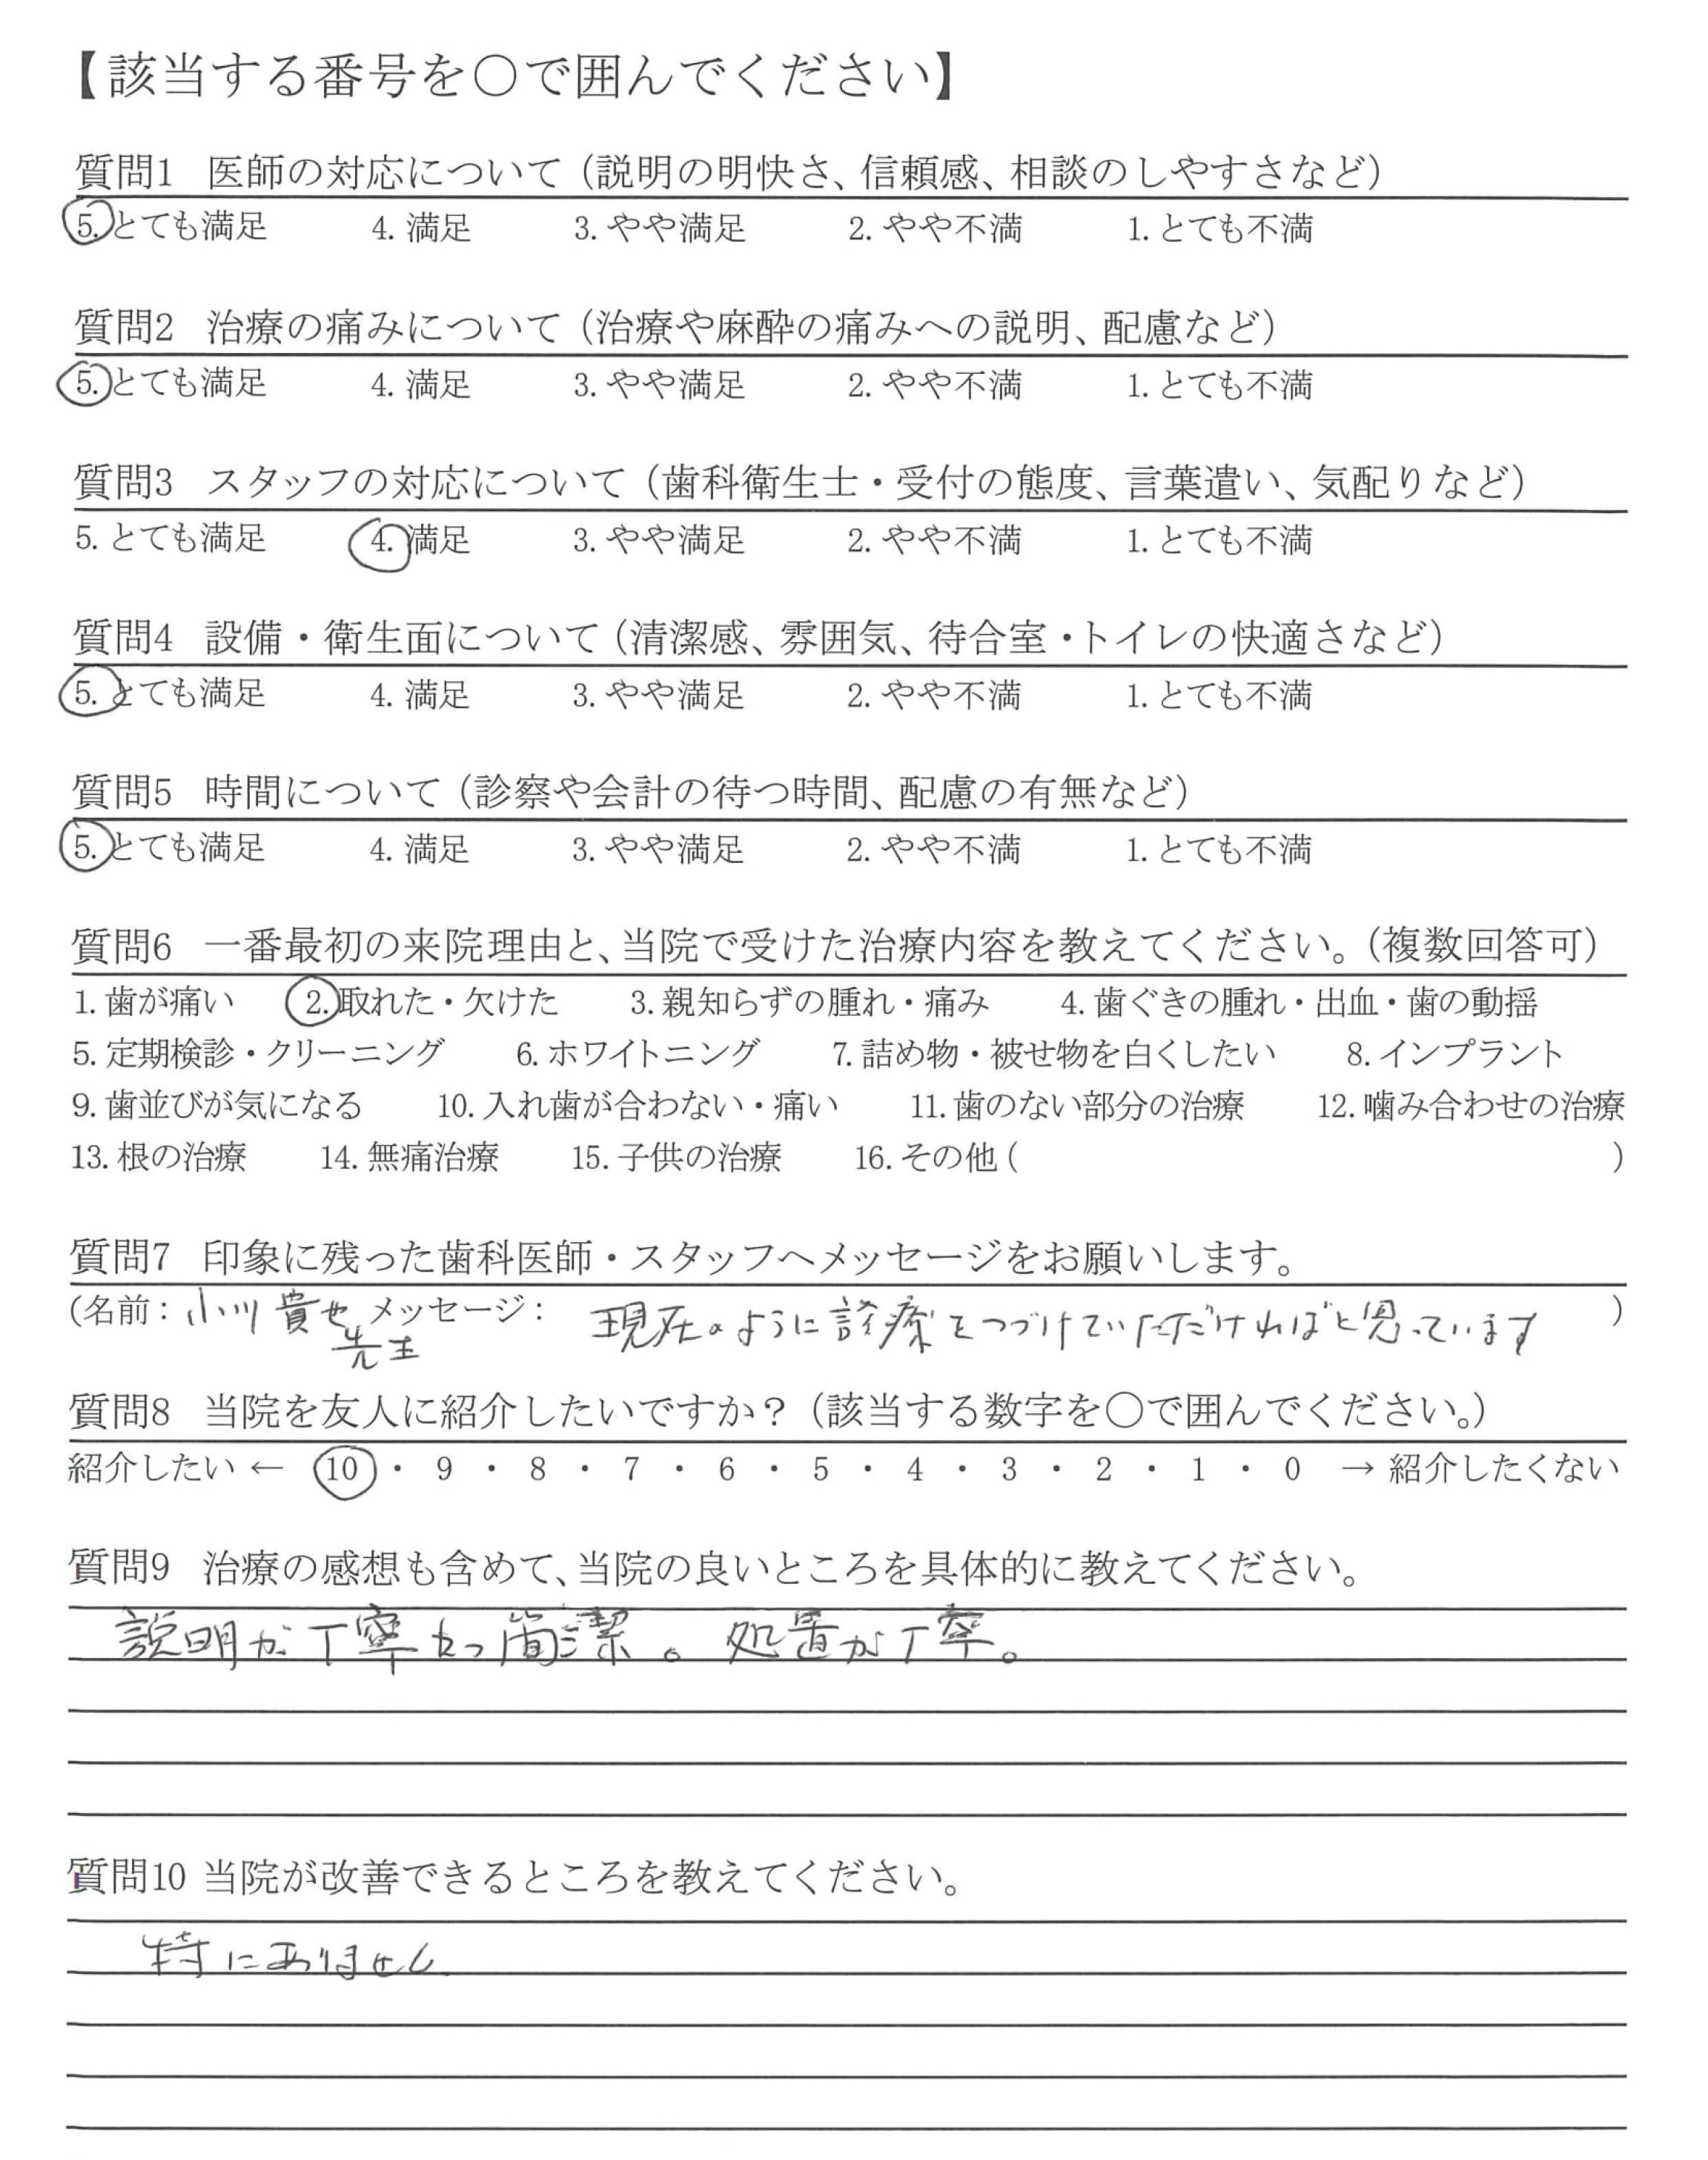 【該当する番号を○で囲んでください】
質問1 医師の対応について（説明の明快さ、信頼感、相談のしやすさなど）
5. とても満足 4. 満足 3. やや満足 2. やや不満 1. とても不満
質問2 治療の痛みについて（治療や麻酔の痛みへの説明、配慮など）
5. とても満足 4. 満足 3. やや満足 2. やや不満 1. とても不満
質問3 スタッフの対応について（歯科衛生士・受付の態度、言葉遣い、気配りなど）
5. とても満足 4. 満足 3. やや満足 2. やや不満 1. とても不満
質問4 設備・衛生面について（清潔感、雰囲気、待合室・トイレの快適さなど）
5. とても満足 4. 満足 3. やや満足 2. やや不満 1. とても不満
質問5 時間について（診察や会計の待つ時間、配慮の有無など）
5. とても満足 4. 満足 3. やや満足 2. やや不満 1. とても不満
質問6 一番最初の来院理由と、当院で受けた治療内容を教えてください。（複数回答可）
1. 歯が痛い 2. 取れた・欠けた 3. 親知らずの腫れ・痛み 4. 歯ぐきの腫れ・出血・歯の動揺
5. 定期検診・クリーニング 6. ホワイトニング 7. 詰め物・被せ物を白くしたい 8. インプラント
9. 歯並びが気になる 10. 入れ歯が合わない・痛い 11. 歯のない部分の治療 12. 噛み合わせの治療
13. 根の治療 14. 無痛治療 15. 子供の治療 16. その他 ( )
質問7 印象に残った歯科医師・スタッフへメッセージをお願いします。
(名前：小川貴也先生 メッセージ： 現在のように診療をつづけていただければと思っています )
質問8 当院を友人に紹介したいですか？（該当する数字を○で囲んでください。）
紹介したい ← 10 ・ 9 ・ 8 ・ 7 ・ 6 ・ 5 ・ 4 ・ 3 ・ 2 ・ 1 ・ 0 → 紹介したくない
質問9 治療の感想も含めて、当院の良いところを具体的に教えてください。
説明が丁寧かつ簡潔。処置が丁寧。
質問10 当院が改善できるところを教えてください。
特にありません